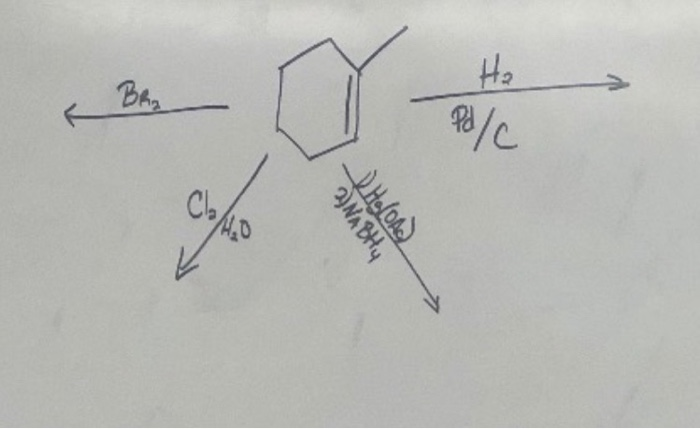 Br₂
H₂
Pd/C
Cl₂
H₂O
1) Hg(OAc)
2) NaBH₄